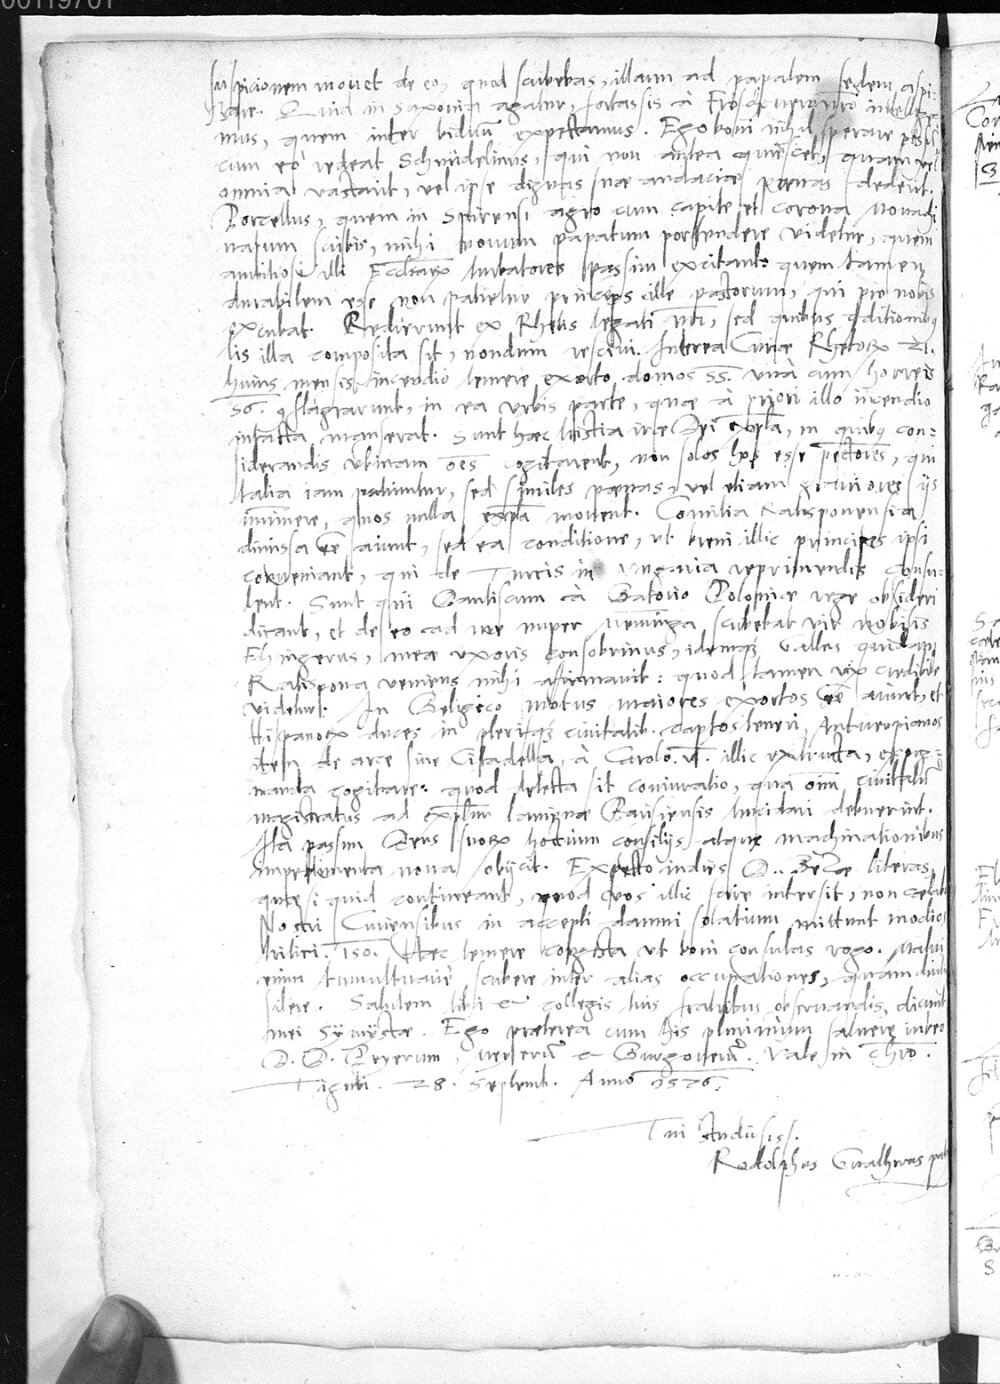 00119701
suspicionem movet de eo, quod scribebas, illum ad papalem sedem aspi-
rare. Quid in Saxonia agatur, fortassis à Froschouero nr̃o intellige-
mus, quem inter biduũ expectamus. Ego boni nihil sperare possũ
cum eò redeat Schmidelinus, qui non antea quiescet, quam vel
omnia vastarit, vel ipse dignas suae audaciae poenas dederit.
Porcellus, quem in Spirensi agro cum capite et corona
natum scribis, mihi novum papatum portendere videtur, quem
ambitiosi illi turbatores passim excitant: quem tamen
durabilem esse non patietur princeps ille pastorum, qui pro nobis
excubat. Redierunt ex Rhetis legati nr̃i, sed quibus cõditionibq
lis illa composita sit, nondum rescivi. Interea Curiae 21.
huius mensis incendio temere exorto domos 55. unà cum horreis
56. cõflagrarunt, in ea urbis parte, quae à priori illo incendio
intacta manserat. Sunt haec tristia irae Dei expla, in quibq con-
siderandis utinam oẽs cogitarent, non solos hos esse peccatores, qui
talia iam patiuntur, sed similes poenas, vel etiam graviores iis
imminere, quos nulla expla movent. Comitia Ratisponensia
dimissa eẽ aiunt, sed ea conditione, ut brevi illic principes ipsi
conveniant, qui de Turcis in Ungaria reprimendis consu-
lent. Sunt qui Dantiscum à Batorio Poloniae rege obsideri
dicant, et de eo ad me nuper scribebat vir nobilis
Ehingerus, meae uxoris consobrinus, idemq Gallus quidam
Ratispona veniens mihi affirmavit: quod tamen vix credibile
videtur. In Belgico motus maiores exortos eẽ aiunt, et
Hispanorꝫ duces in plerisq civitatib. captos teneri, Antverpianos
item de arce sive Citadella, à Carolo.V. illic extructa, expug-
nanda cogitare: quod detecta sit coniuratio, qua oĩm civitatũ
magistratus ad explum lanienae Parisiensis trucidari debuerint.
Ita passim Deus suorꝫ hostium consiliis atque machinationibus
impedimenta nova obiicit. Expecto indies D. Bezae literas,
quae si quid contineant, quod vos illic scire intersit, non celabo
Nostri Curiensibus in accepti damni solatium mittunt modios
tritici. 150. Haec temere congesta ut boni consulas rogo. Malui
enim tumultuariè scribere inter alias occupationes, quam diu
silere. Salutem tibi & collegis tuis fratribus observandis dicunt
mei Symystae. Ego praeterea cum his plurimum salvere iubeo
D. D. & Vale in Chr̃o.
Tiguri. 28. Septemb. Anno 1576.
Tui studiosiss.
Rodolphus Gualtherus pat